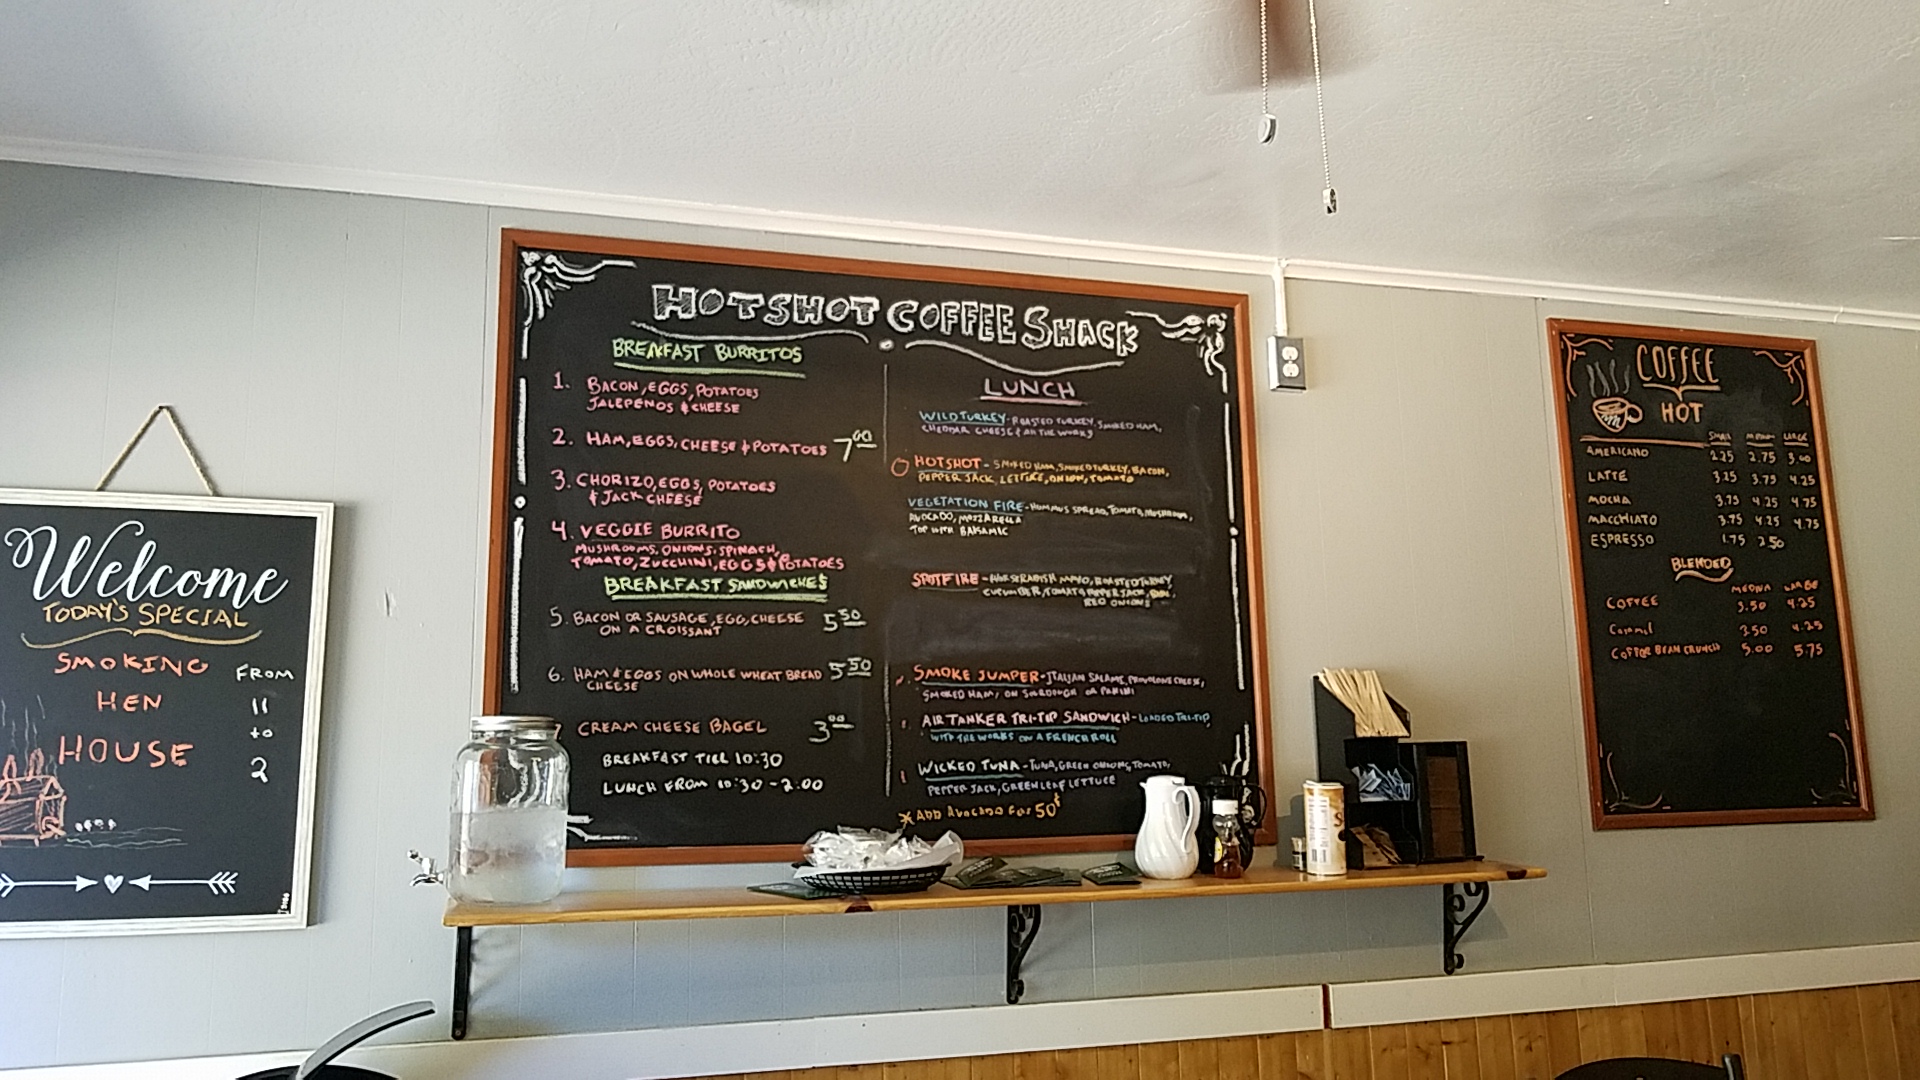 Welcome
TODAY'S SPECIAL
SMOKING
HEN
HOUSE
FROM
11
to
2
HOTSHOT COFFEE SHACK
BREAKFAST BURRITOS
1. BACON, EGGS, POTATOES
JALEPENOS & CHEESE
2. HAM, EGGS, CHEESE & POTATOES 7.00
3. CHORIZO, EGGS, POTATOES
& JACK CHEESE
4. VEGGIE BURRITO
MUSHROOMS, ONIONS, SPINACH,
TOMATO, ZUCCHINI, EGGS & POTATOES
BREAKFAST SANDWICHES
5. BACON OR SAUSAGE, EGG, CHEESE 5.50
ON A CROISSANT
6. HAM & EGGS ON WHOLE WHEAT BREAD 5.50
CHEESE
CREAM CHEESE BAGEL 3.00
BREAKFAST TILL 10:30
LUNCH FROM 10:30 - 2:00
LUNCH
WILD TURKEY - ROASTED TURKEY, SMOKED HAM,
CHEDDAR CHEESE & ALL THE WORKS
HOTSHOT - SMOKED HAM, SMOKED TURKEY, BACON,
PEPPER JACK, LETTUCE, ONION, TOMATO
VEGETATION FIRE - HUMMUS SPREAD, TOMATO, MUSHROOM,
AVOCADO, MOZZARELLA
TOP WITH BALSAMIC
SPOTFIRE - HORSERADISH MAYO, ROASTED TURKEY,
CUCUMBER, TOMATO, PEPPER JACK,
RED ONIONS
SMOKE JUMPER - ITALIAN SALAME, PROVOLONE CHEESE,
SMOKED HAM, ON SOURDOUGH OR PANINI
AIR TANKER TRI-TIP SANDWICH - LOADED TRI-TIP,
WITH THE WORKS ON A FRENCH ROLL
WICKED TUNA - TUNA, GREEN ONIONS, TOMATO,
PEPPER JACK, GREEN LEAF LETTUCE
* ADD Avocado For 50¢
COFFEE
HOT
SMALL MEDIUM LARGE
AMERICANO 2.25 2.75 3.00
LATTE 3.25 3.75 4.25
MOCHA 3.75 4.25 4.75
MACCHIATO 3.75 4.25 4.75
ESPRESSO 1.75 2.50
BLENDED
MEDIUM LARGE
COFFEE 3.50 4.25
Caramel 3.50 4.25
COFFEE BEAN CRUNCH 5.00 5.75